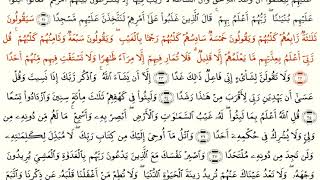 عَلَيْهِم بُنْيَٰنًا ۖ رَّبُّهُمْ أَعْلَمُ بِهِمْ ۚ قَالَ ٱلَّذِينَ غَلَبُوا۟ عَلَىٰٓ أَمْرِهِمْ لَنَتَّخِذَنَّ عَلَيْهِم مَّسْجِدًا ٢١ سَيَقُولُونَ
ثَلَٰثَةٌ رَّابِعُهُمْ كَلْبُهُمْ وَيَقُولُونَ خَمْسَةٌ سَادِسُهُمْ كَلْبُهُمْ رَجْمًۢا بِٱلْغَيْبِ ۖ وَيَقُولُونَ سَبْعَةٌ وَثَامِنُهُمْ كَلْبُهُمْ ۚ قُل
رَّبِّىٓ أَعْلَمُ بِعِدَّتِهِم مَّا يَعْلَمُهُمْ إِلَّا قَلِيلٌ ۗ فَلَا تُمَارِ فِيهِمْ إِلَّا مِرَآءً ظَٰهِرًا وَلَا تَسْتَفْتِ فِيهِم مِّنْهُمْ أَحَدًا
٢٢ وَلَا تَقُولَنَّ لِشَا۟ىْءٍ إِنِّى فَاعِلٌ ذَٰلِكَ غَدًا ٢٣ إِلَّآ أَن يَشَآءَ ٱللَّهُ ۚ وَٱذْكُر رَّبَّكَ إِذَا نَسِيتَ وَقُلْ
عَسَىٰٓ أَن يَهْدِيَنِ رَبِّى لِأَقْرَبَ مِنْ هَٰذَا رَشَدًا ٢٤ وَلَبِثُوا۟ فِى كَهْفِهِمْ ثَلَٰثَ مِا۟ئَةٍ سِنِينَ وَٱزْدَادُوا۟ تِسْعًا
٢٥ قُلِ ٱللَّهُ أَعْلَمُ بِمَا لَبِثُوا۟ ۖ لَهُۥ غَيْبُ ٱلسَّمَٰوَٰتِ وَٱلْأَرْضِ ۖ أَبْصِرْ بِهِۦ وَأَسْمِعْ ۚ مَا لَهُم مِّن دُونِهِۦ مِن وَلِىٍّ
وَلَا يُشْرِكُ فِى حُكْمِهِۦٓ أَحَدًا ٢٦ وَٱتْلُ مَآ أُوحِىَ إِلَيْكَ مِن كِتَابِ رَبِّكَ ۖ لَا مُبَدِّلَ لِكَلِمَٰتِهِۦ
وَلَن تَجِدَ مِن دُونِهِۦ مُلْتَحَدًا ٢٧ وَٱصْبِرْ نَفْسَكَ مَعَ ٱلَّذِينَ يَدْعُونَ رَبَّهُم بِٱلْغَدَوٰةِ وَٱلْعَشِىِّ يُرِيدُونَ
وَجْهَهُۥ ۖ وَلَا تَعْدُ عَيْنَاكَ عَنْهُمْ تُرِيدُ زِينَةَ ٱلْحَيَوٰةِ ٱلدُّنْيَا ۖ وَلَا تُطِعْ مَنْ أَغْفَلْنَا قَلْبَهُۥ عَن ذِكْرِنَا وَٱتَّبَعَ